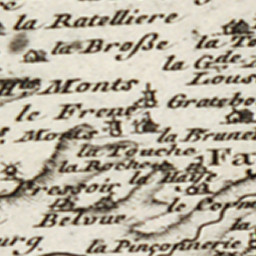 la Ratelliere
la Broße
la Gde
Lous
Hts Monts
le Frene
Gratebo
Monts
la Brune
la Touche
la Roche
Fa
la Haye
Pressoir
le Corm
Belvue
la
ourg
la Pinçonnerie